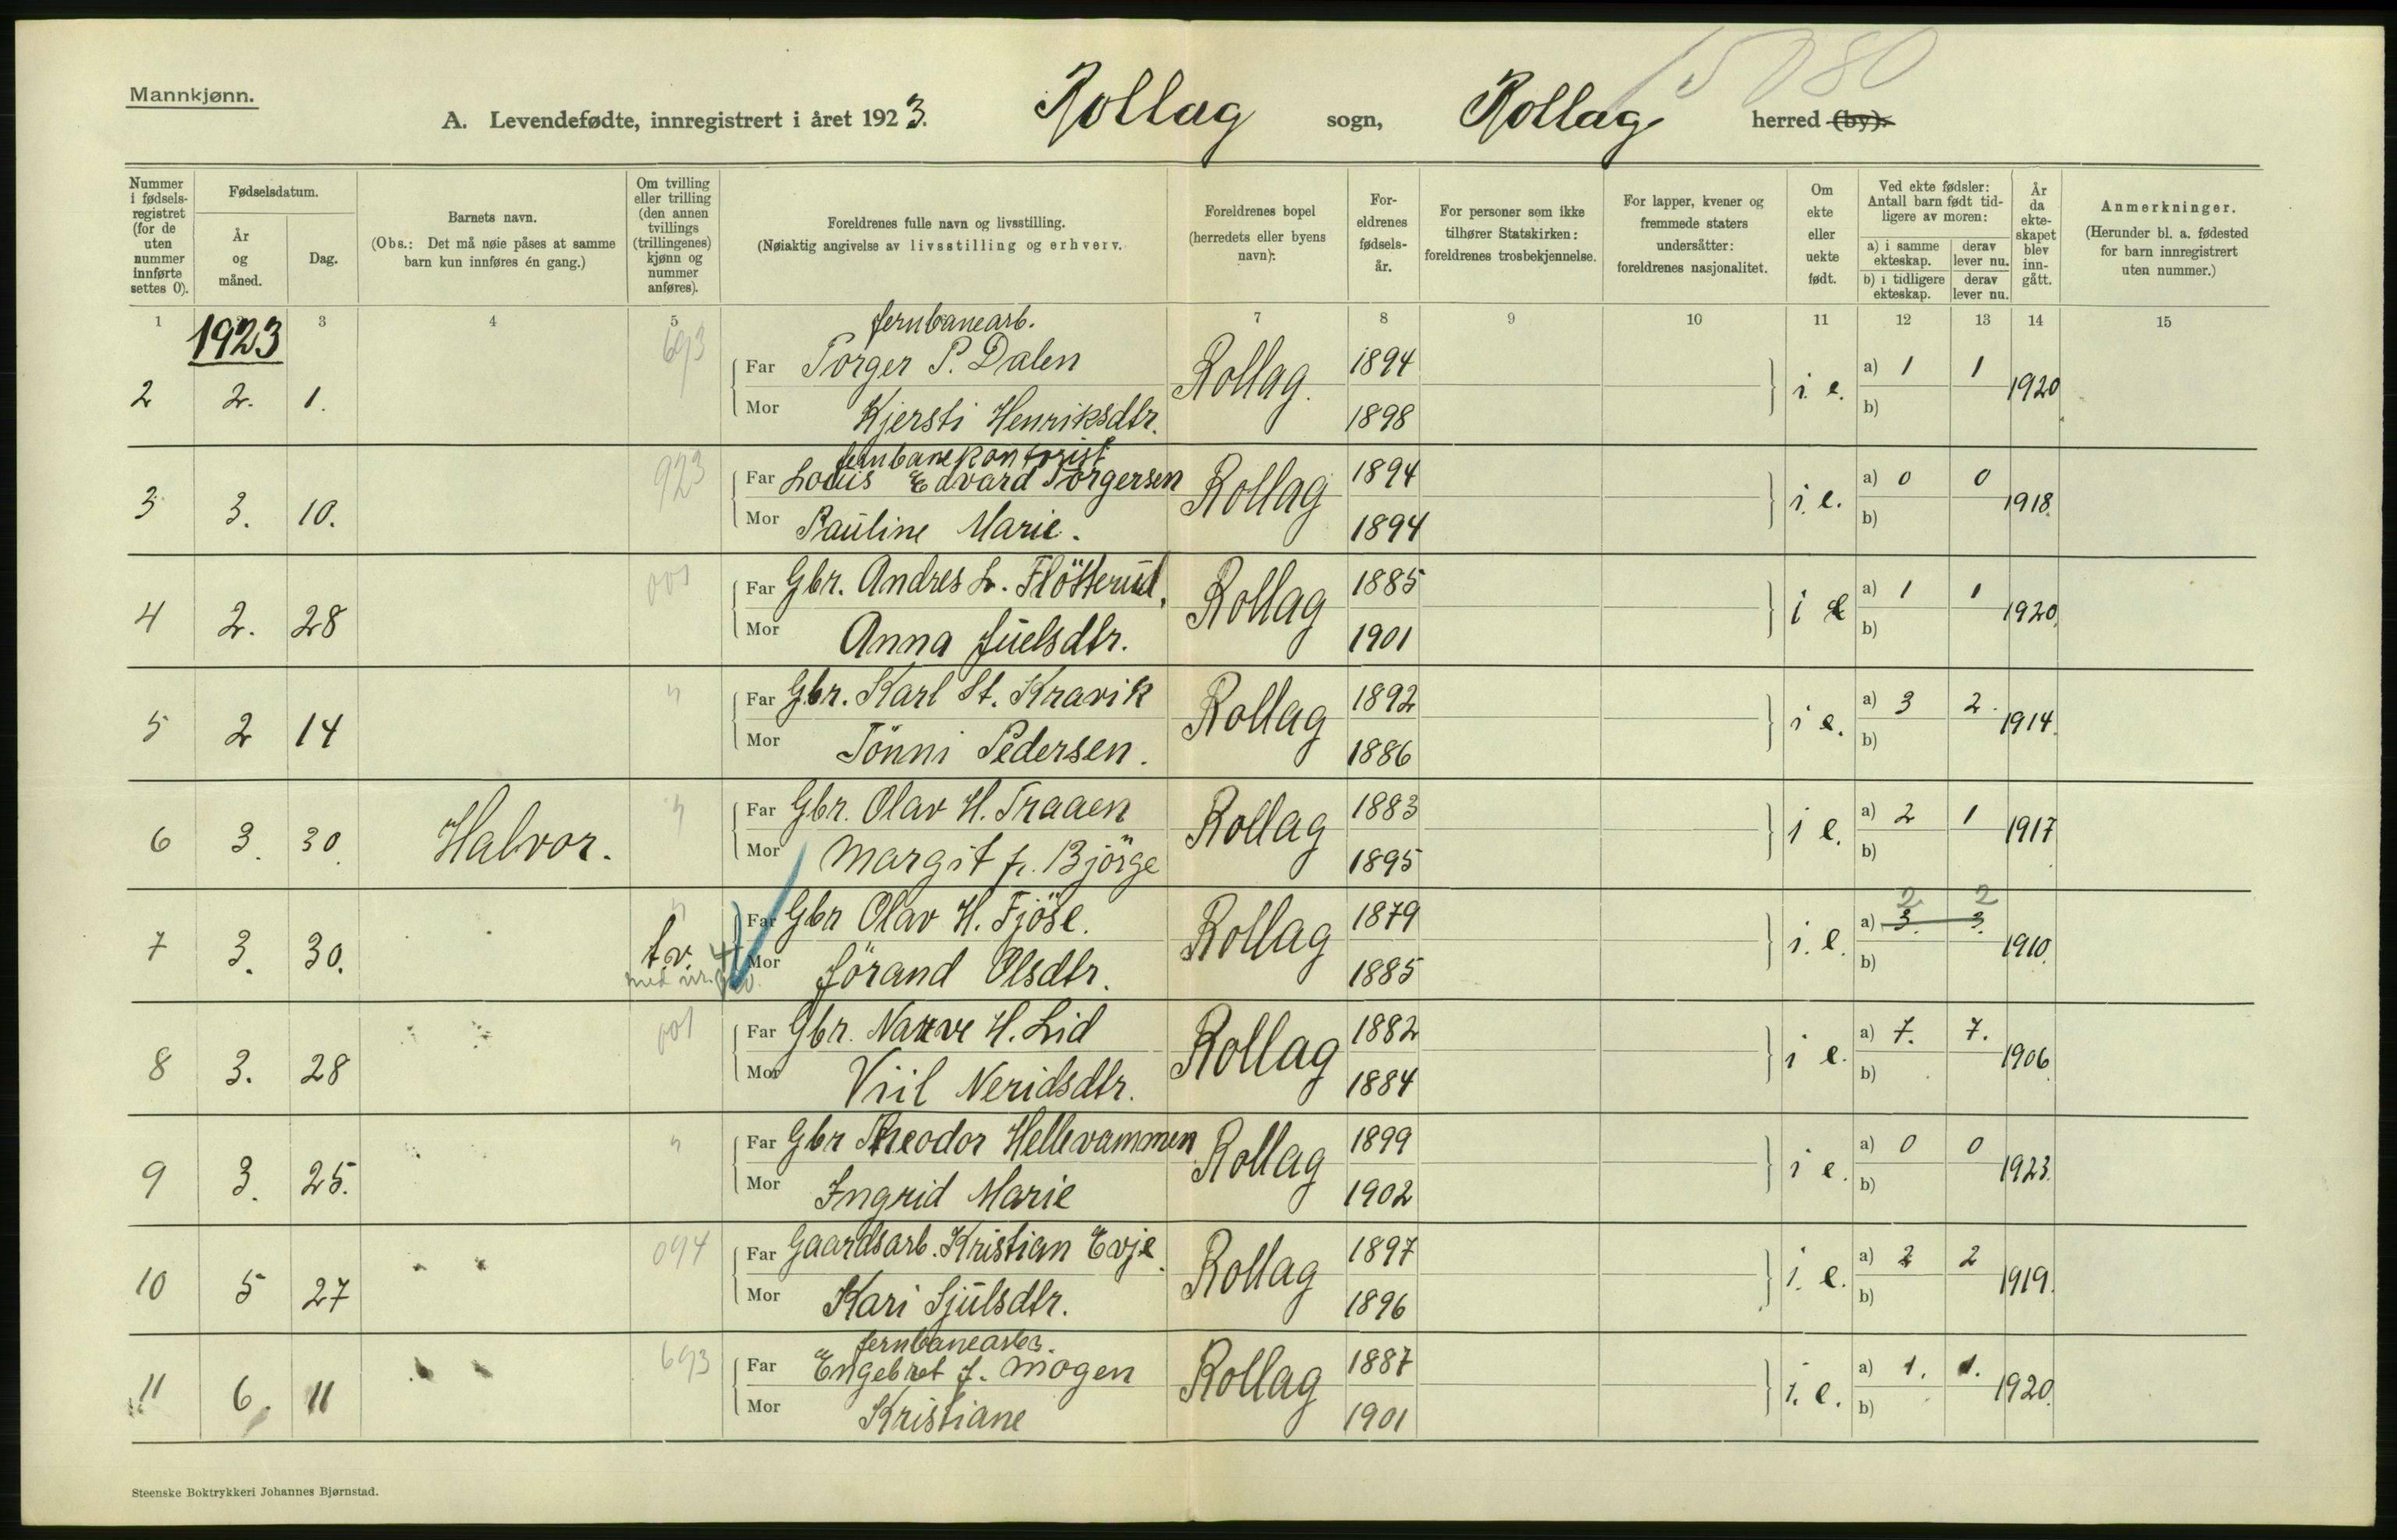 15080
Mannkjønn.
A. Levendefødte, innregistrert i året 1923. Rollag sogn, Rollag herred (by).
Nummer i fødsels-registret (for de uten nummer innførte settes 0).
Fødselsdatum.
År og måned.
Dag.
Barnets navn.
(Obs.: Det må nøie påses at samme barn kun innføres én gang.)
Om tvilling eller trilling (den annen tvillings (trillingenes) kjønn og nummer anføres).
Foreldrenes fulle navn og livsstilling.
(Nøiaktig angivelse av livsstilling og erhverv.
Foreldrenes bopel (herredets eller byens navn):
For-eldrenes fødsels-år.
For personer som ikke tilhører Statskirken: foreldrenes trosbekjennelse.
For lapper, kvener og fremmede staters undersåtter: foreldrenes nasjonalitet.
Om ekte eller uekte født.
Ved ekte fødsler: Antall barn født tid-ligere av moren:
a) i samme ekteskap. derav lever nu.
b) i tidligere ekteskap. derav lever nu.
År da ekte-skapet blev inn-gått.
Anmerkninger.
(Herunder bl. a. fødested for barn innregistrert uten nummer.)
1 3 4 5 7 8 9 10 11 12 13 14 15
1923
693 Jernbanearb.
2 2. 1. Far Torger P. Dalen Rollag. 1894 i. e. a) 1 1 1920
Mor Kjersti Henriksdtr. 1898 b)
923 Jernbanekontorist
3 3. 10. Far Louis Edvard Torgersen Rollag 1894 i. e. a) 0 0 1918.
Mor Pauline Marie. 1894 b)
4 2. 28 001 Far Gbr. Andres L. Flötterud. Rollag 1885 i e a) 1 1 1920.
Mor Anna Juelsdtr. 1901 b)
5 2 14 " Far Gbr. Karl St. Kravik Rollag 1892 i e. a) 3 2. 1914.
Mor Tönni Pedersen. 1886 b)
6 3. 30. Halvor. " Far Gbr. Olav H. Traaen Rollag 1883 i e. a) 2 1 1917
Mor Margit f. Björge 1895 b)
2 2
7 3. 30. " t.v. Far Gbr Olav H. Fjöse. Rollag 1879 i. e. a) 3. 3. 1910.
med nr. Mor Jörand Olsdtr. 1885 b)
8 3. 28 001 Far Gbr. Narve H. Lid Rollag 1882 i e. a) 7. 7. 1906.
Mor Viil Neridsdtr. 1884 b)
9 3. 25. " Far Gbr Theodor Hellevammen Rollag 1899 i e. a) 0 0 1923.
Mor Ingrid Marie 1902 b)
10 5 27 094 Far Gaardsarb. Kristian Evje. Rollag 1897 i. e. a) 2 2 1919.
Mor Kari Sjulsdtr. 1896 b)
693 Jernbanearb.
11 6. 11 Far Engebret J. Mogen Rollag 1887 i. e. a) 1. 1. 1920.
Mor Kristiane 1901 b)
Steenske Boktrykkeri Johannes Bjørnstad.